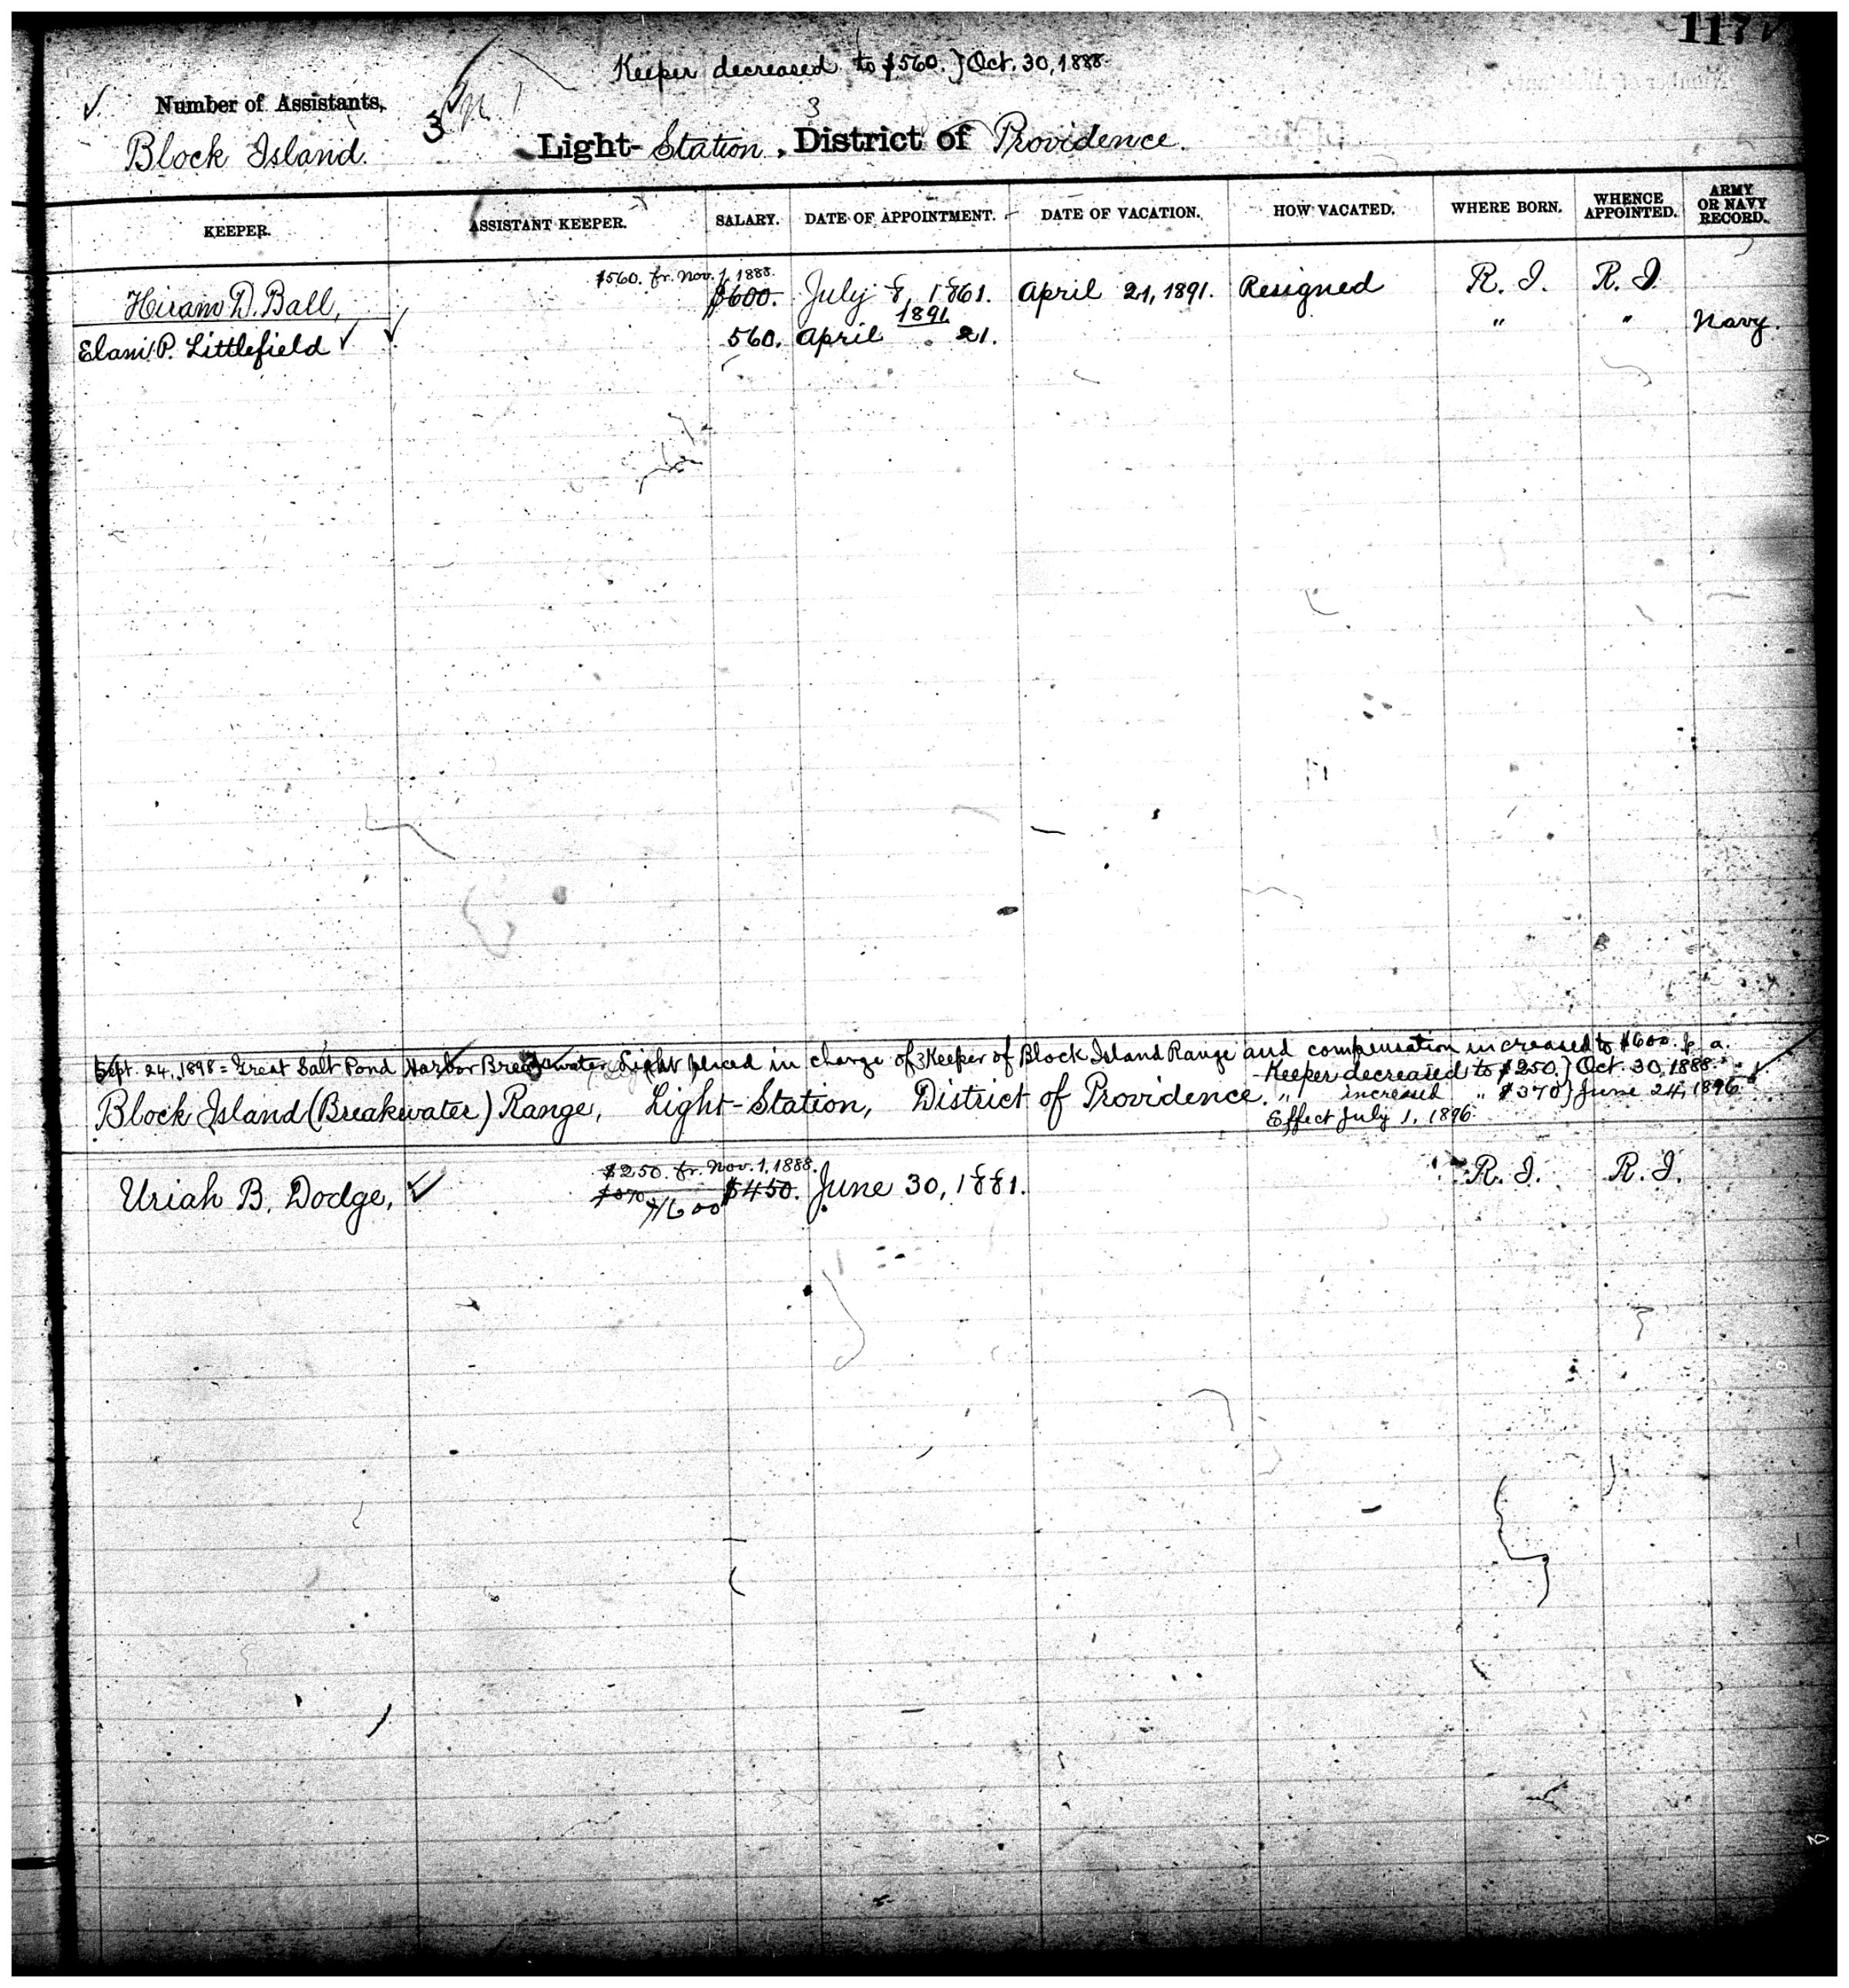 117
Keeper decreased to $560. } Oct. 30, 1888.
Number of Assistants,
3
3
Block Island. Light-Station, District of Providence.
KEEPER. ASSISTANT KEEPER. SALARY. DATE OF APPOINTMENT. DATE OF VACATION. HOW VACATED. WHERE BORN. WHENCE APPOINTED. ARMY OR NAVY RECORD.
$560. fr. Nov. 1, 1888.
Hiram D. Ball, $600. July 8, 1861. April 21, 1891. Resigned R. I. R. I.
1891
Elam P. Littlefield 560. April 21. " " Navy.
Sept. 24, 1898 = Great Salt Pond Harbor Breakwater Light placed in charge of Keeper of Block Island Range and compensation increased to $600. p. a.
Keeper decreased to $250. } Oct. 30, 1888.
Block Island (Breakwater) Range, Light-Station, District of Providence. " increased " $370 } June 24, 1896
Effect July 1, 1896.
$250. fr. Nov. 1, 1888.
Uriah B. Dodge, $370 $450. June 30, 1881. R. I. R. I.
$600